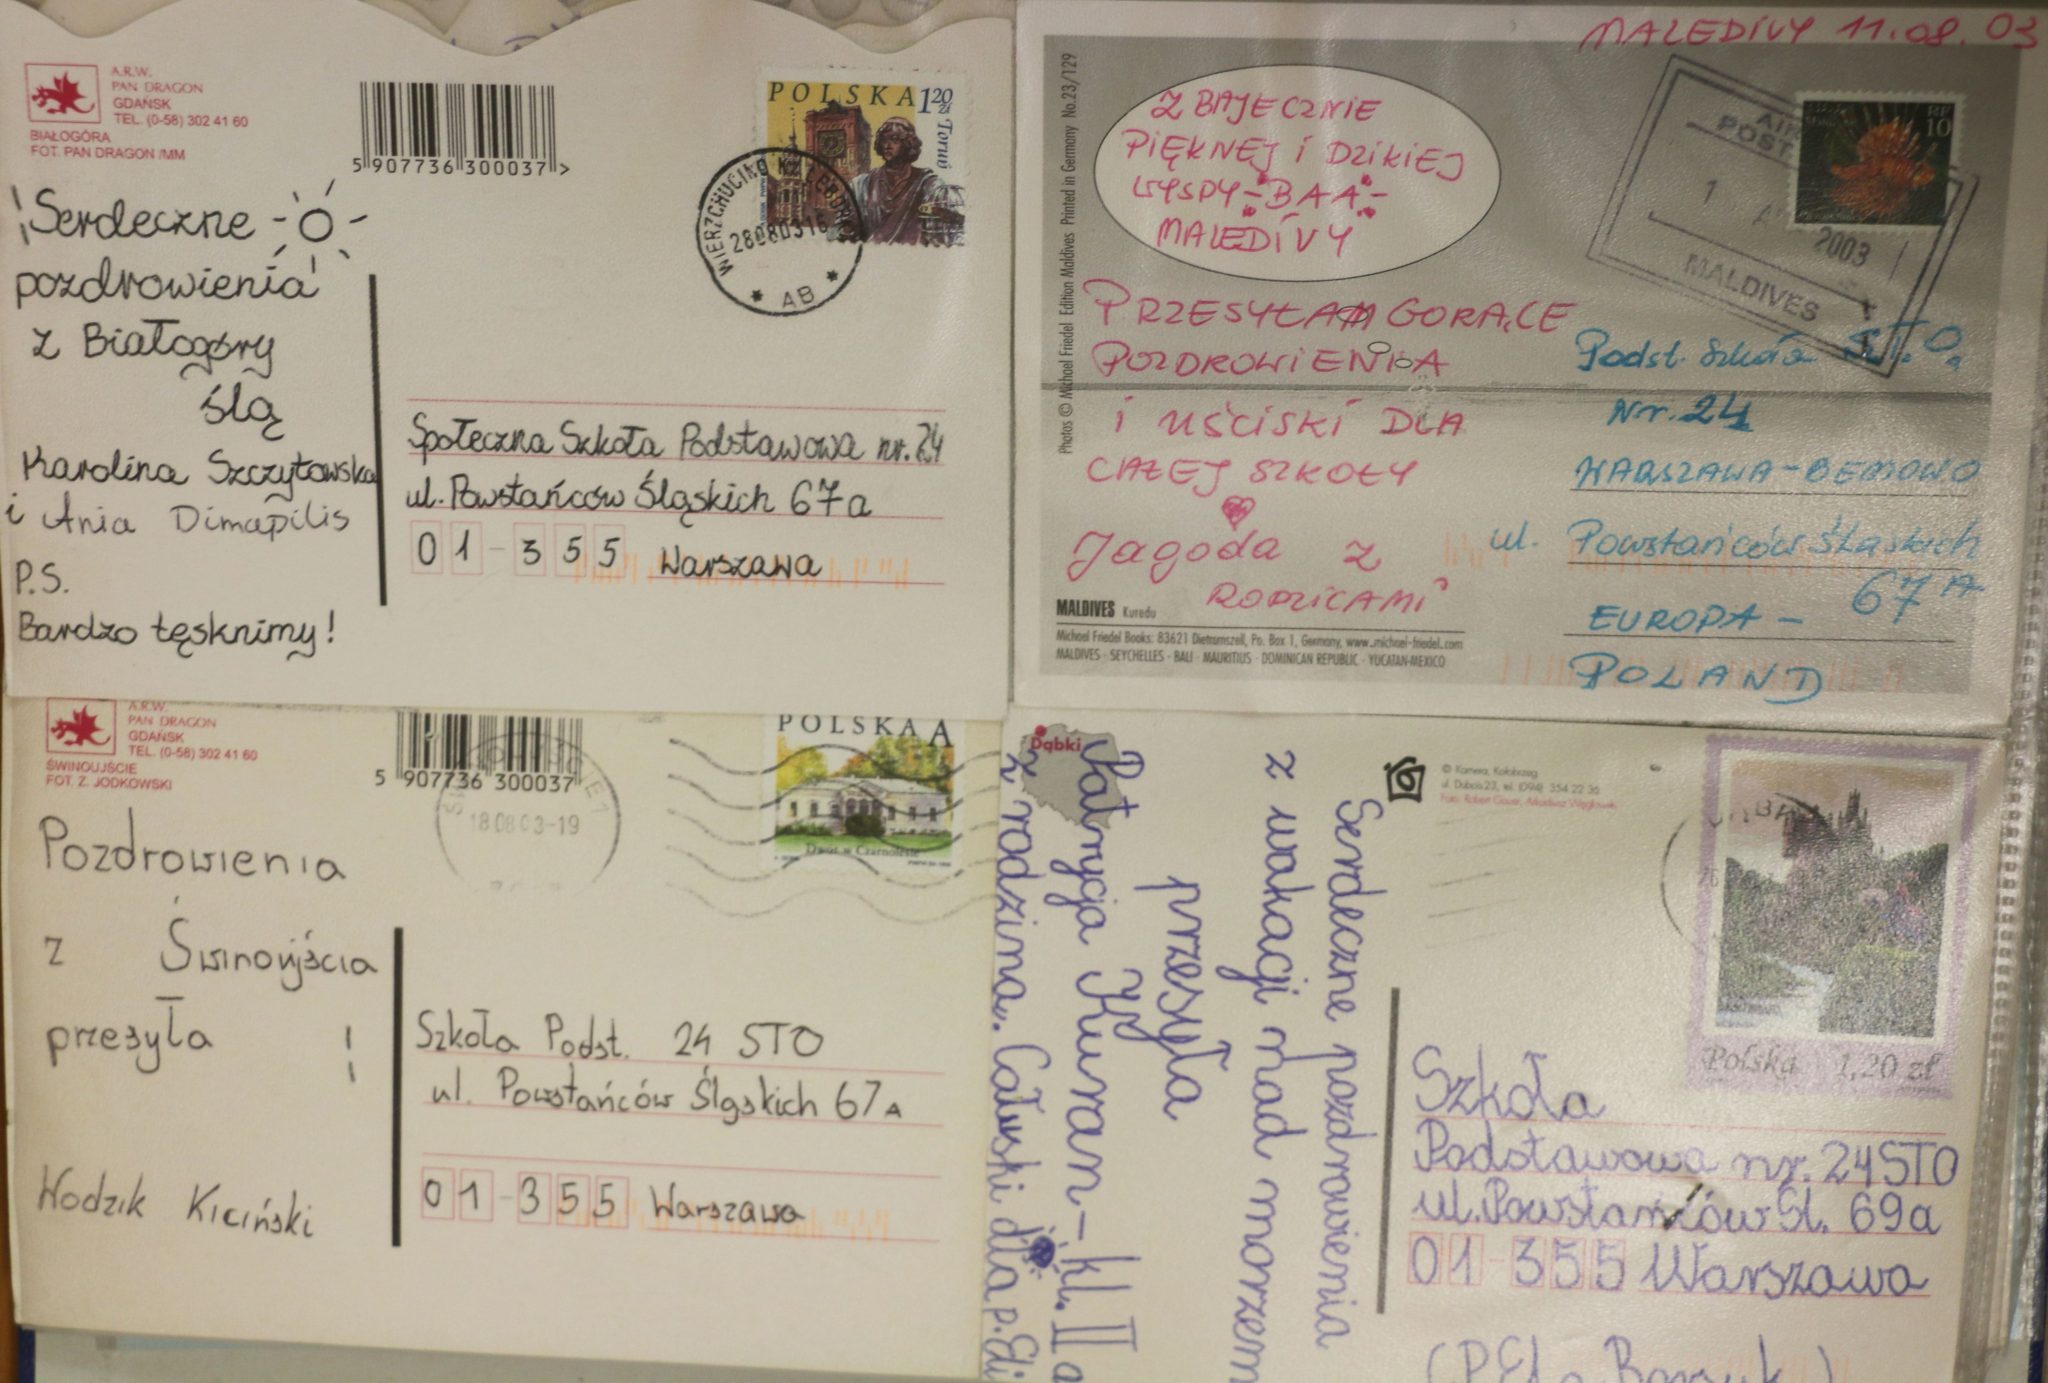 A.R.W.
PAN DRAGON
GDAŃSK
TEL. (0-58) 302 41 60
BIAŁOGÓRA
FOT. PAN DRAGON /MM
5 907736 300037 >
POLSKA 120 zł
Toruń
WIERZCHUCINO K/ LĘBORKA
280803 16
* AB *
Serdeczne
pozdrowienia
z Białogóry
ślą
Karolina Szczytowska
i Ania Dimapilis
P.S.
Bardzo tęsknimy!
Społeczna Szkoła Podstawowa nr. 24
ul. Powstańców Śląskich 67a
01-355 Warszawa
MALEDIVY 11.08.03
Photos © Michael Friedel Edition Maldives Printed in Germany No.23/129
Z BAJECZNIE
PIĘKNEJ i DZIKIEJ
WYSPY - BAA -
MALEDIVY
AIR
POST
1
2003
MALDIVES
RF
10
PRZESYŁAM GORĄCE
POZDROWIENIA
i UŚCISKI DLA
CAŁEJ SZKOŁY
Jagoda z
RODZICAMI
Podst. Szkoła S.T.O.
Nr. 24
WARSZAWA-BEMOWO
ul. Powstańców Śląskich
67A
EUROPA -
POLAND
MALDIVES Kuredu
Michael Friedel Books: 83621 Dietramszell, Po. Box 1, Germany, www.michael-friedel.com
MALDIVES - SEYCHELLES - BALI - MAURITIUS - DOMINICAN REPUBLIC - YUCATAN-MEXICO
A.R.W.
PAN DRAGON
GDAŃSK
TEL. (0-58) 302 41 60
ŚWINOUJŚCIE
FOT. Z. JODKOWSKI
5 907736 300037
18 08 03-19
POLSKA A
Dwór w Czarnolesie
Pozdrowienia
z Świnoujścia
przesyła
Wodzik Kiciński
Szkoła Podst. 24 STO
ul. Powstańców Śląskich 67A
01-355 Warszawa
Dąbki
Serdeczne pozdrowienia
z wakacji nad morzem
przesyła
Patrycja Kuran - kl. II a
z rodzina. Całuski dla p. Eli
© Kamera, Kołobrzeg
ul. Dubois 23, tel. (094) 354 22 36
Polska 1,20 zł
Szkoła
Podstawowa nr. 24 STO
ul. Powstańców Śl. 69a
01-355 Warszawa